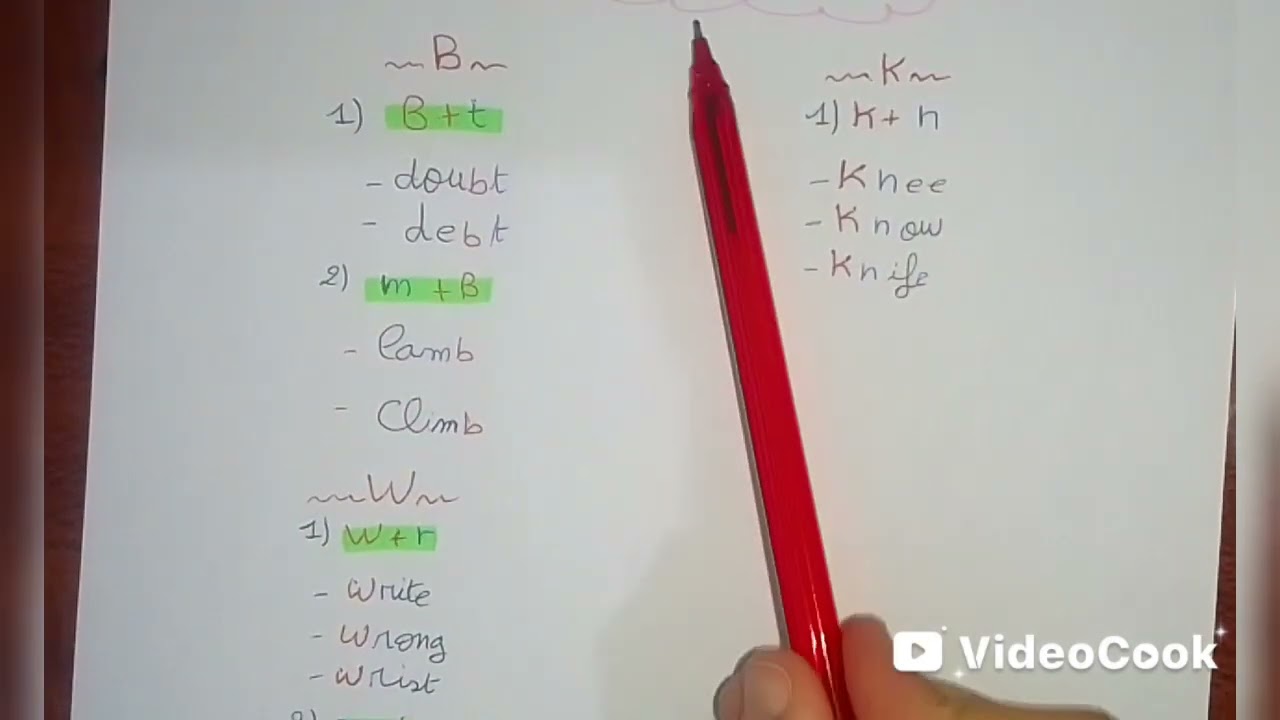 ~B~
1) B+t
- doubt
- debt
2) m+B
- lamb
- Climb
~W~
1) W+r
- write
- wrong
- wrist
~K~
1) K+n
- Knee
- Know
- Knife
VideoCook